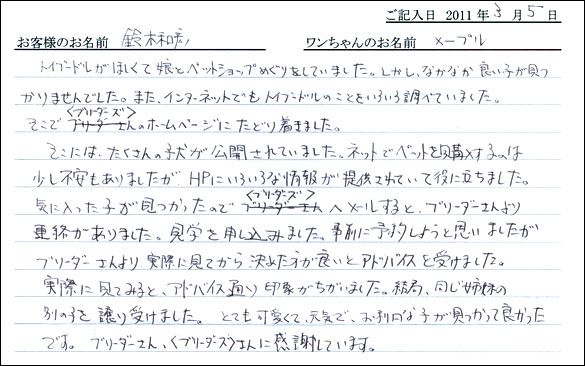 ご記入日 2011年 3月 5日
お客様のお名前 鈴木和彦 ワンちゃんのお名前 メープル
トイプードルがほしくて娘とペットショップめぐりをしていました。しかし、なかなか良い子が見つ
かりませんでした。また、インターネットでもトイプードルのことをいろいろ調べていました。
<ブリーダーズ>
そこでブリーダーさんのホームページにたどり着きました。
そこには、たくさんの子犬が公開されていました。ネットでペットを購入するのは
少し不安もありましたが、HPにいろいろな情報が提供されていて役に立ちました。
<ブリーダーズ>
気に入った子が見つかったのでブリーダーさんへメールすると、ブリーダーさんより
連絡がありました。見学を申し込みました。事前に予約しようと思いましたが
ブリーダーさんより、実際に見てから決めた方が良いとアドバイスを受けました。
実際に見てみると、アドバイス通り印象がちがいました。結局、同じ姉妹の
別の子を譲り受けました。とても可愛くて、元気で、お利口な子が見つかって良かった
です。ブリーダーさん、<ブリーダーズ>さんに感謝しています。